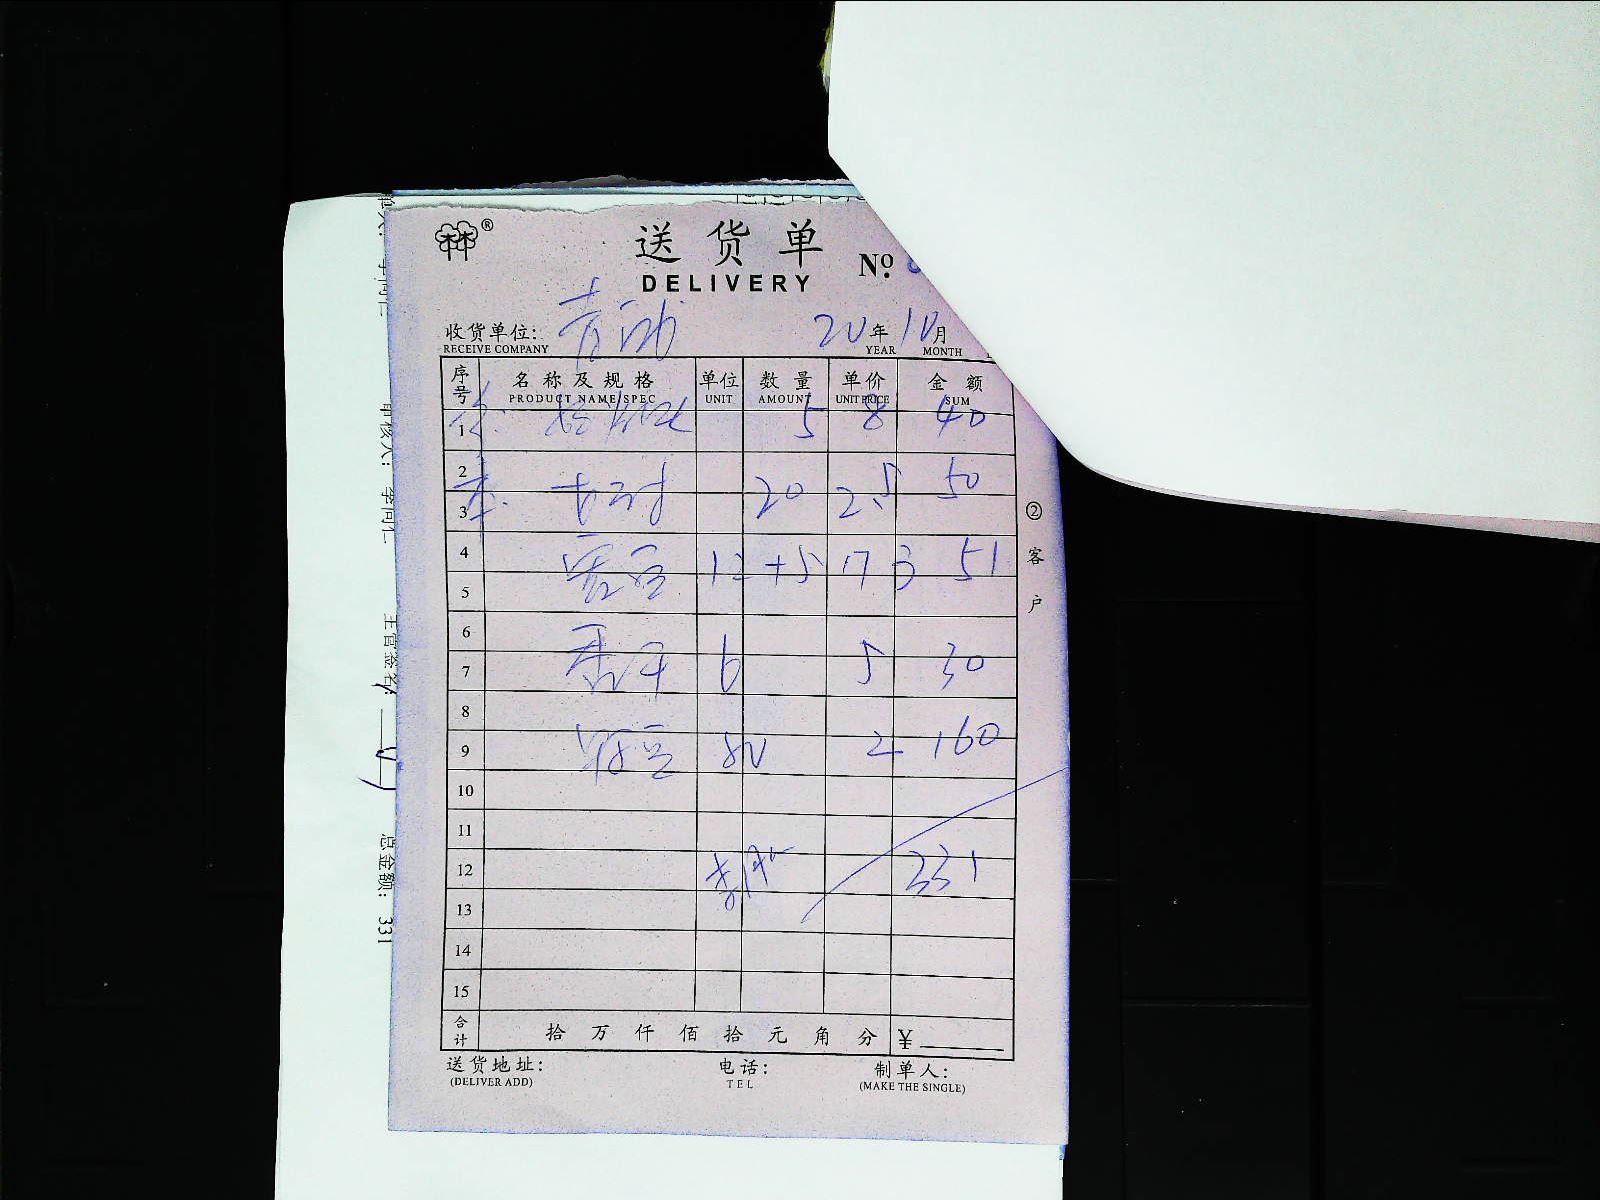 ®
送货单
DELIVERY
Nº
收货单位:
RECEIVE COMPANY
20年10月
YEAR MONTH
序号 名称及规格 单位 数量 单价 金额
PRODUCT NAME/SPEC UNIT AMOUNT UNIT PRICE SUM
1 5 8 40
2
3 20 2.5 50
4 12 +5 17 3 51
5
6
7 6 5 30
8
9 80 2 160
10
11
12 331
13
14
15
合计 拾 万 仟 佰 拾 元 角 分 ¥
送货地址: 电话: 制单人:
(DELIVER ADD) TEL (MAKE THE SINGLE)
②客户
审核人: 李向仁
主管签名:
总金额: 331